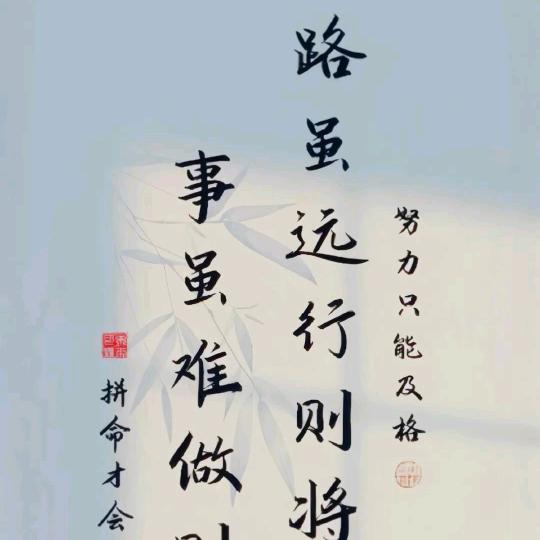 努力只能及格
路虽远行则将
事虽难做则
拼命才会